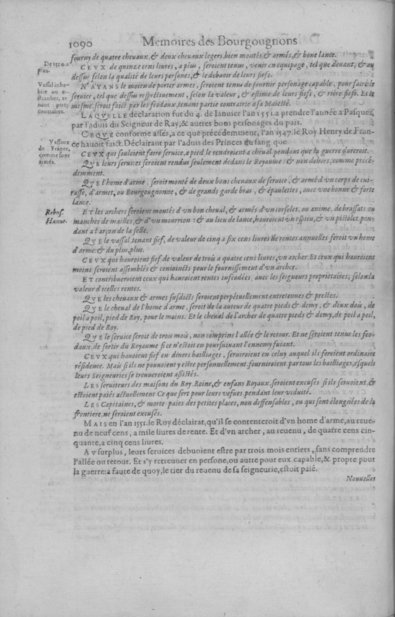 1090 Memoires des Bourgougnons
fournir de quatre cheuaux, & deux cheuaux legers bien montés & armés, & bone lance.
CEVX de quinze cens liures, a plus, seroient tenus, venir en equipage, tel que deuant, & au
dessus selon la qualité de leurs persones, & le debuoir de leurs fiefs.
N'AYANS le moien de porter armes, seroient tenus de fournir personage capable, pour faire le
seruice, tel que dessus respectiuement, selon la valeur, & estime de leurs fiefs, & riere-fiefs. Et le
mesme seroit faict par les
LAQVELLE declaration fut du 4. de Ianuier l'an 1551. a prendre l'année a Pasques,
par l'aduis du Seigneur de Ray, & autres bons personages du païs.
CE QVE conforme assés, a ce que precedemment, l'an 1547. le Roy Henry de Fran-
ce hauoit faict. Declairant par l'aduis des Princes du sang que.
CEVX qui souloient faire seruice, a pied le rendroient a cheual pendant que la guerre dureroit.
QVE leurs seruices seroient rendus seulement dedans le Royaume: & non dehors, comme prece-
demment.
QVE l'home d'arme, seroit monté de deux bons cheuaux de seruice, & armé d'un corps de cui-
rasse, d'armet, ou Bourgougnonte, & de grands garde bras, & épaulettes, auec une bonne & forte
lance.
ET les archers seroient montés d'un bon cheual, & armés d'un corselet, ou anime, de brassats ou
manches de mailles, & d'un mourrion: & au lieu de lance, hauroient un épieu, & un pistolet, pen-
dant a l'arçon de la selle.
QVE le vassal tenant fief, de valeur de cinq a six cens liures de rentes annuelles feroit un home
d'arme & du plus, plus.
CEVX qui hauroient fief de valeur de trois a quatre cens liures, un archer. Et ceux qui hauroient
moins seroient assemblés & contincts pour le fournissement d'un archer.
ET contribueroient ceux qui hauroient rentes infeudées, auec les seigneurs proprietaires, selon la
valeur d'icelles rentes.
QVE les cheuaux & armes susdicts seroient perpetuellement entretenues & prestes.
QVE le cheual de l'home d'arme, seroit de la auteur de quatre pieds & demy, & deux doits, de
poil a poil, pied de Roy, pour le moins. Et le cheual de l'archer de quatre pieds & demy, de poil a poil,
de pied de Roy.
QVE le seruice seroit de trois mois, non comprins l'allée & le retour. Et ne seroient tenus les feu-
daux, de sortir du Royaume si ce n'estoit en poursuiuant l'ennemy fuiant.
CEVX qui hauoient fief en diuers bailliages, seruiroient en celuy auquel ils feroient ordinaire
résidence. Mais si ils ne pouuoient y estre personnellement, fourniroient par tous les bailliages, esquels
leurs Seigneuries se trouueroient assises.
LES seruiteurs des maisons du Roy, Reine, & enfans Royaux, seroient excusés si ils seruoient, &
estoient païés actuellement. Ce que sert pour leurs vefues pendant leur viduité.
LES Capitaines, & morte païes des petites places, non deffensables, ou qui sont elongées de la
frontiere, ne seroient excusés.
MAIS en l'an 1552. le Roy déclairat, qu'il se contenteroit d'un home d'arme, au reue-
nu de neuf cens, a mile liures de rente. Et d'un archer, au reuenu, de quatre cens cin-
quante, a cinq cens liures.
AV surplus, leurs seruices debuoient estre par trois mois entiers, sans comprendre
l'allée ou retour. Et s'y retreuuer en persone, ou autre pour eux capable, & propre pour
la guerre: a faute de quoy, le tier du reuenu de sa seigneurie, estoit païé.
Nouuelles